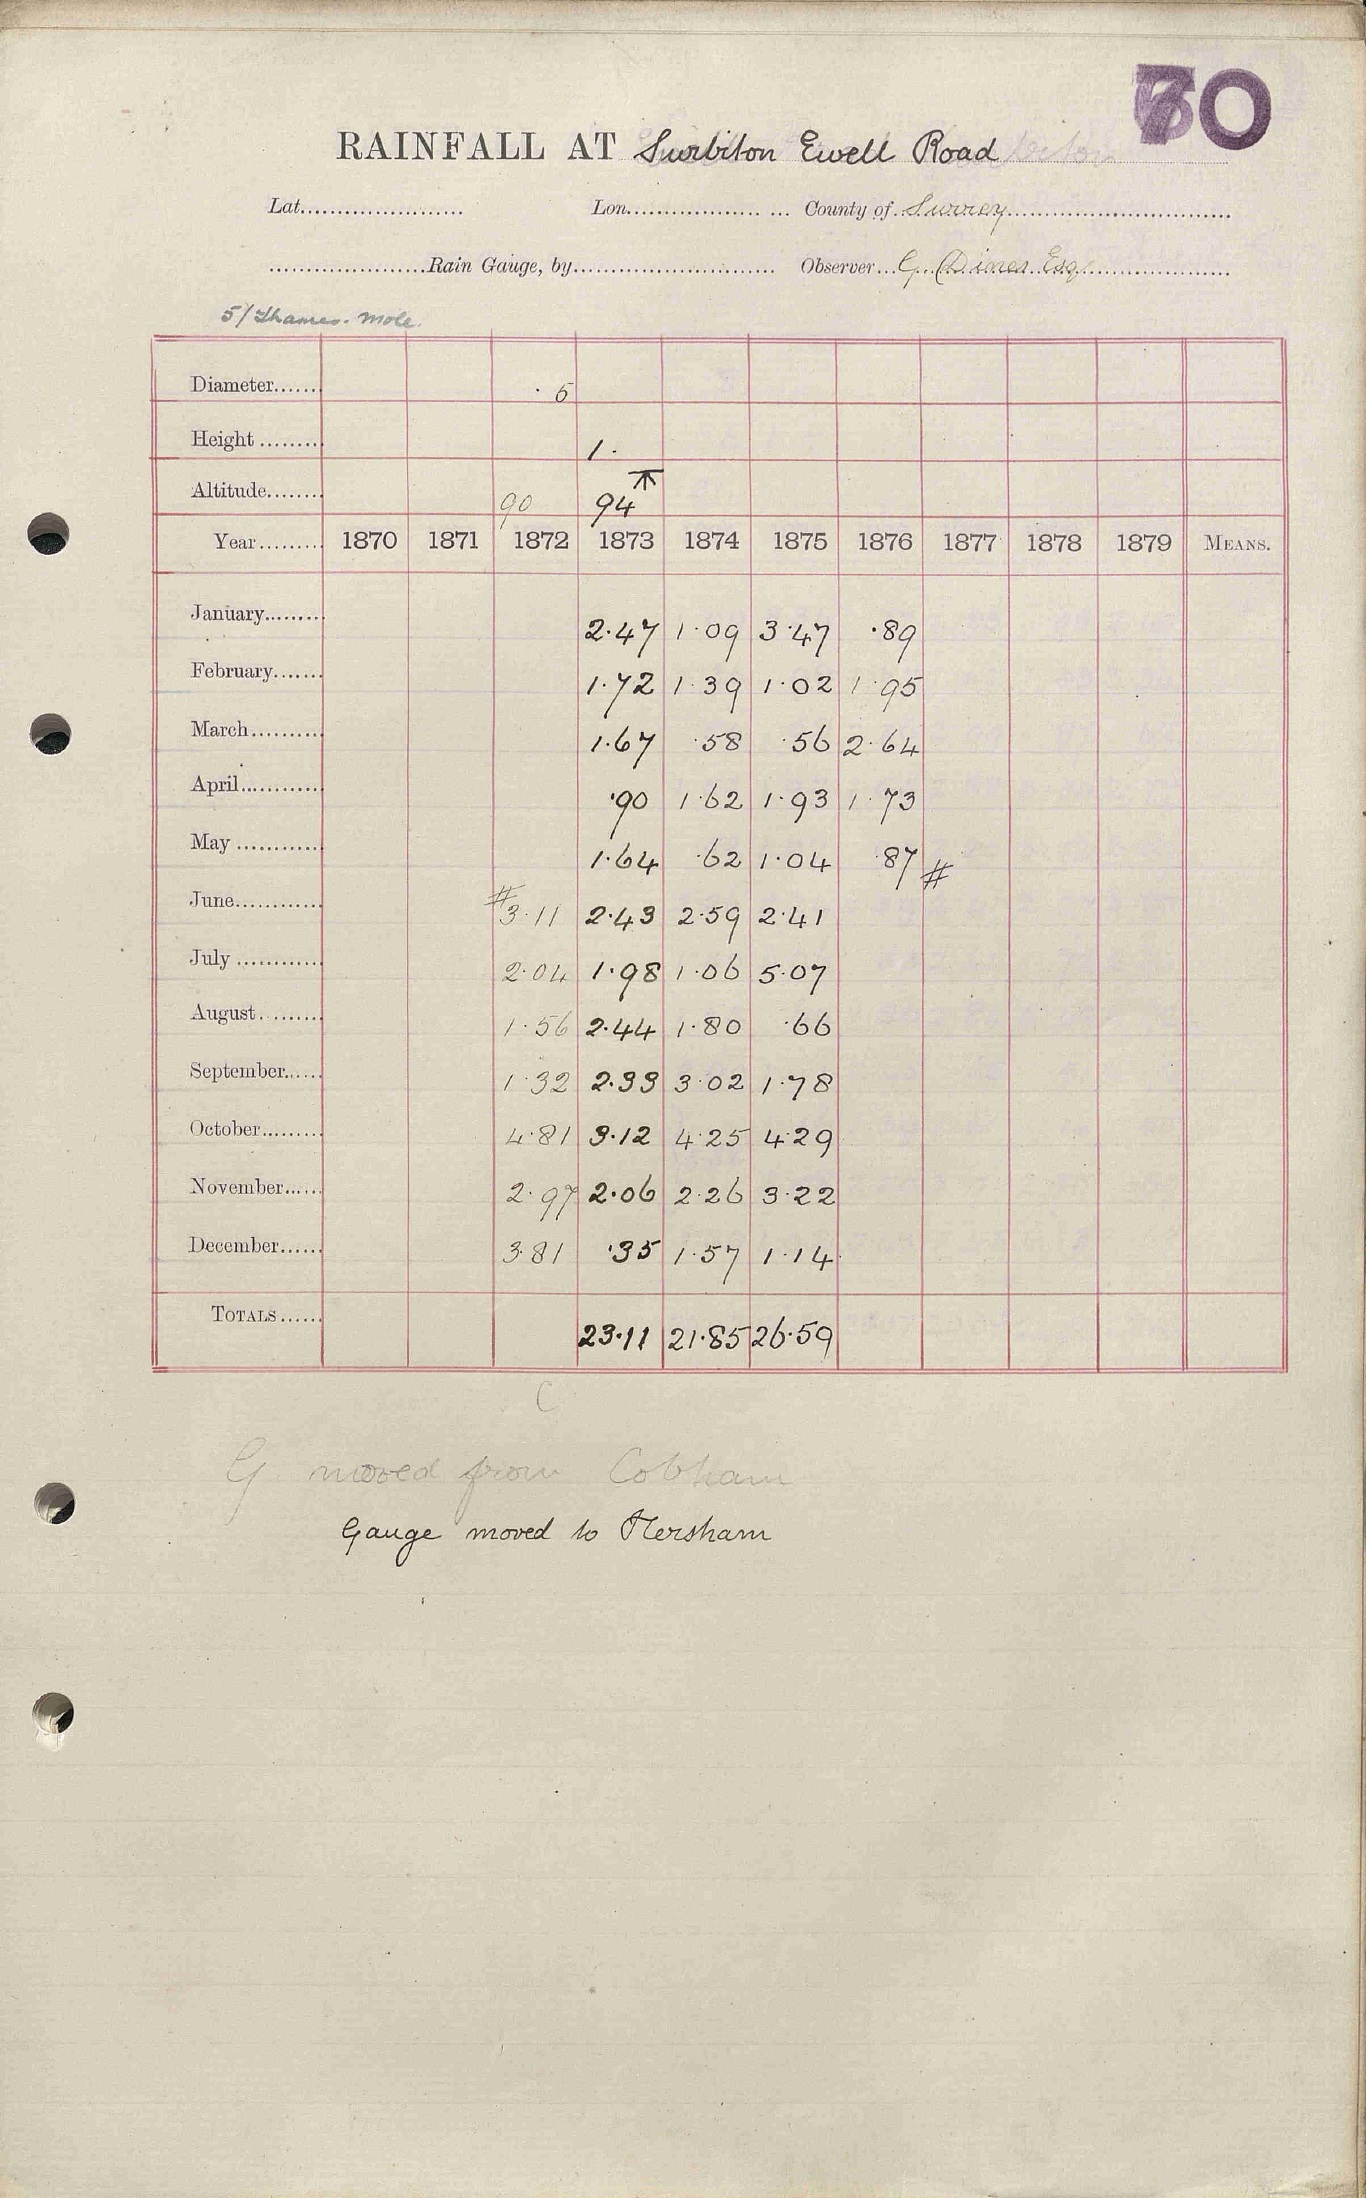 70
RAINFALL AT Surbiton Ewell Road
Lat...................... Lon.................. ... County of Surrey
......................Rain Gauge, by........................... Observer G. Dines Esq
5/ Thames. Mole.
Diameter....... · 5
Height ......... 1.
Altitude........ 90 94
Year......... 1870 1871 1872 1873 1874 1875 1876 1877 1878 1879 MEANS.
January......... 2.47 1.09 3.47 .89
February....... 1.72 1.39 1.02 1.95
March.......... 1.67 .58 .56 2.64
April............ .90 1.62 1.93 1.73
May ............ 1.64 .62 1.04 .87 #
June............ # 3.11 2.43 2.59 2.41
July ............ 2.04 1.98 1.06 5.07
August......... 1.56 2.44 1.80 .66
September...... 1.32 2.33 3.02 1.78
October......... 4.81 3.12 4.25 4.29
November...... 2.97 2.06 2.26 3.22
December...... 3.81 .35 1.57 1.14
TOTALS...... 23.11 21.85 26.59
C
G moved from Cobham
Gauge moved to Hersham